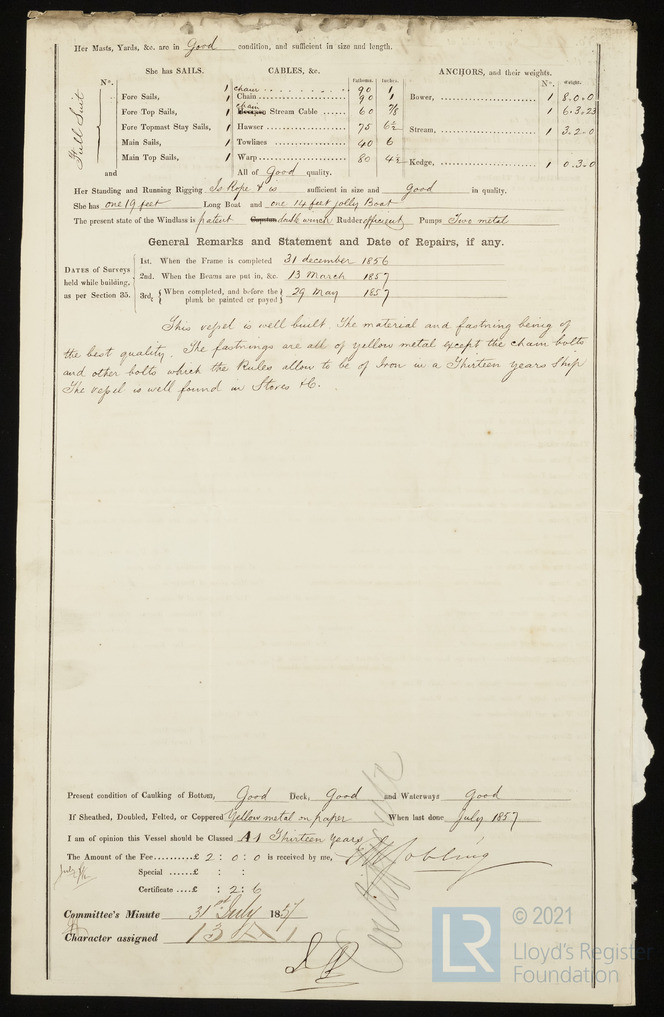 Her Masts, Yards, &c. are in Good condition, and sufficient in size and length.
She has SAILS. CABLES, &c. ANCHORS, and their weights.
N°. Fathoms. Inches. N°. Weight.
Full Suit
1 chain 90 1
Fore Sails, 1 Chain 90 1 Bower, 1 8.0.0
Fore Top Sails, 1 chain Stream Cable 60 7/8 1 6.3.23
Fore Topmast Stay Sails, 1 Hawser 75 6½ Stream, 1 3.2.0
Main Sails, 1 Towlines 40 6
Main Top Sails, 1 Warp 80 4½ Kedge, 1 0.3.0
and All of Good quality.
Her Standing and Running Rigging Is Rope & is sufficient in size and good in quality.
She has one 19 feet Long Boat and one 14 feet jolly Boat
The present state of the Windlass is patent Capstan double winch Rudder efficient Pumps Two metal
General Remarks and Statement and Date of Repairs, if any.
DATES of Surveys held while building, as per Section 35.
1st. When the Frame is completed 31 december 1856
2nd. When the Beams are put in, &c. 13 March 1857
3rd, { When completed, and before the plank be painted or payed } 29 May 1857
This vessel is well built. The material and fastning being of
the best quality. The fastnings are all of yellow metal except the chain bolts
and other bolts which the Rules allow to be of Iron in a Thirteen years Ship
The vessel is well found in Stores &c.
Present condition of Caulking of Bottom, Good Deck, Good and Waterways Good
If Sheathed, Doubled, Felted, or Coppered Yellow metal on paper When last done July 1857
I am of opinion this Vessel should be Classed A1 Thirteen years
The Amount of the Fee £ 2 : 0 : 0 is received by me, Jobling
Special £ : :
Certificate £ : 2 : 6
Committee's Minute 31st July 1857
Character assigned 13 A 1
LR
© 2021
Lloyd's Register
Foundation